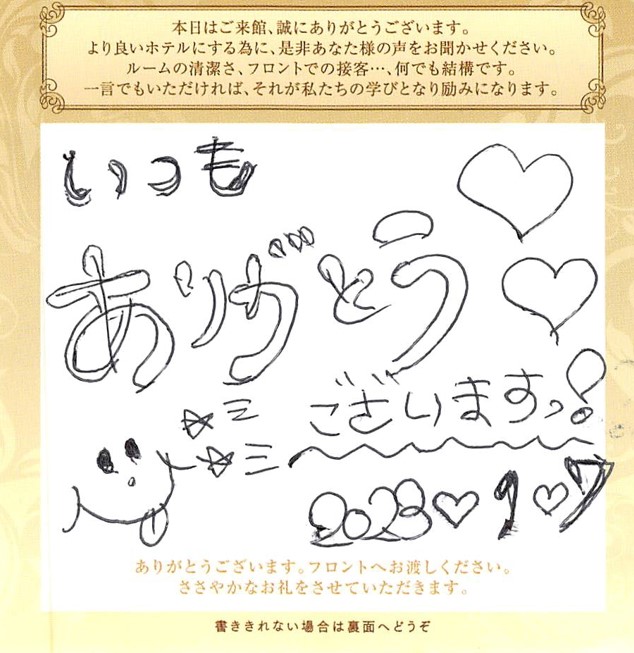 本日はご来館、誠にありがとうございます。
より良いホテルにする為に、是非あなた様の声をお聞かせください。
ルームの清潔さ、フロントでの接客…、何でも結構です。
一言でもいただければ、それが私たちの学びとなり励みになります。
いつも
ありがとう
ございますっ!
2023♡9♡7
ありがとうございます。フロントへお渡しください。
ささやかなお礼をさせていただきます。
書ききれない場合は裏面へどうぞ